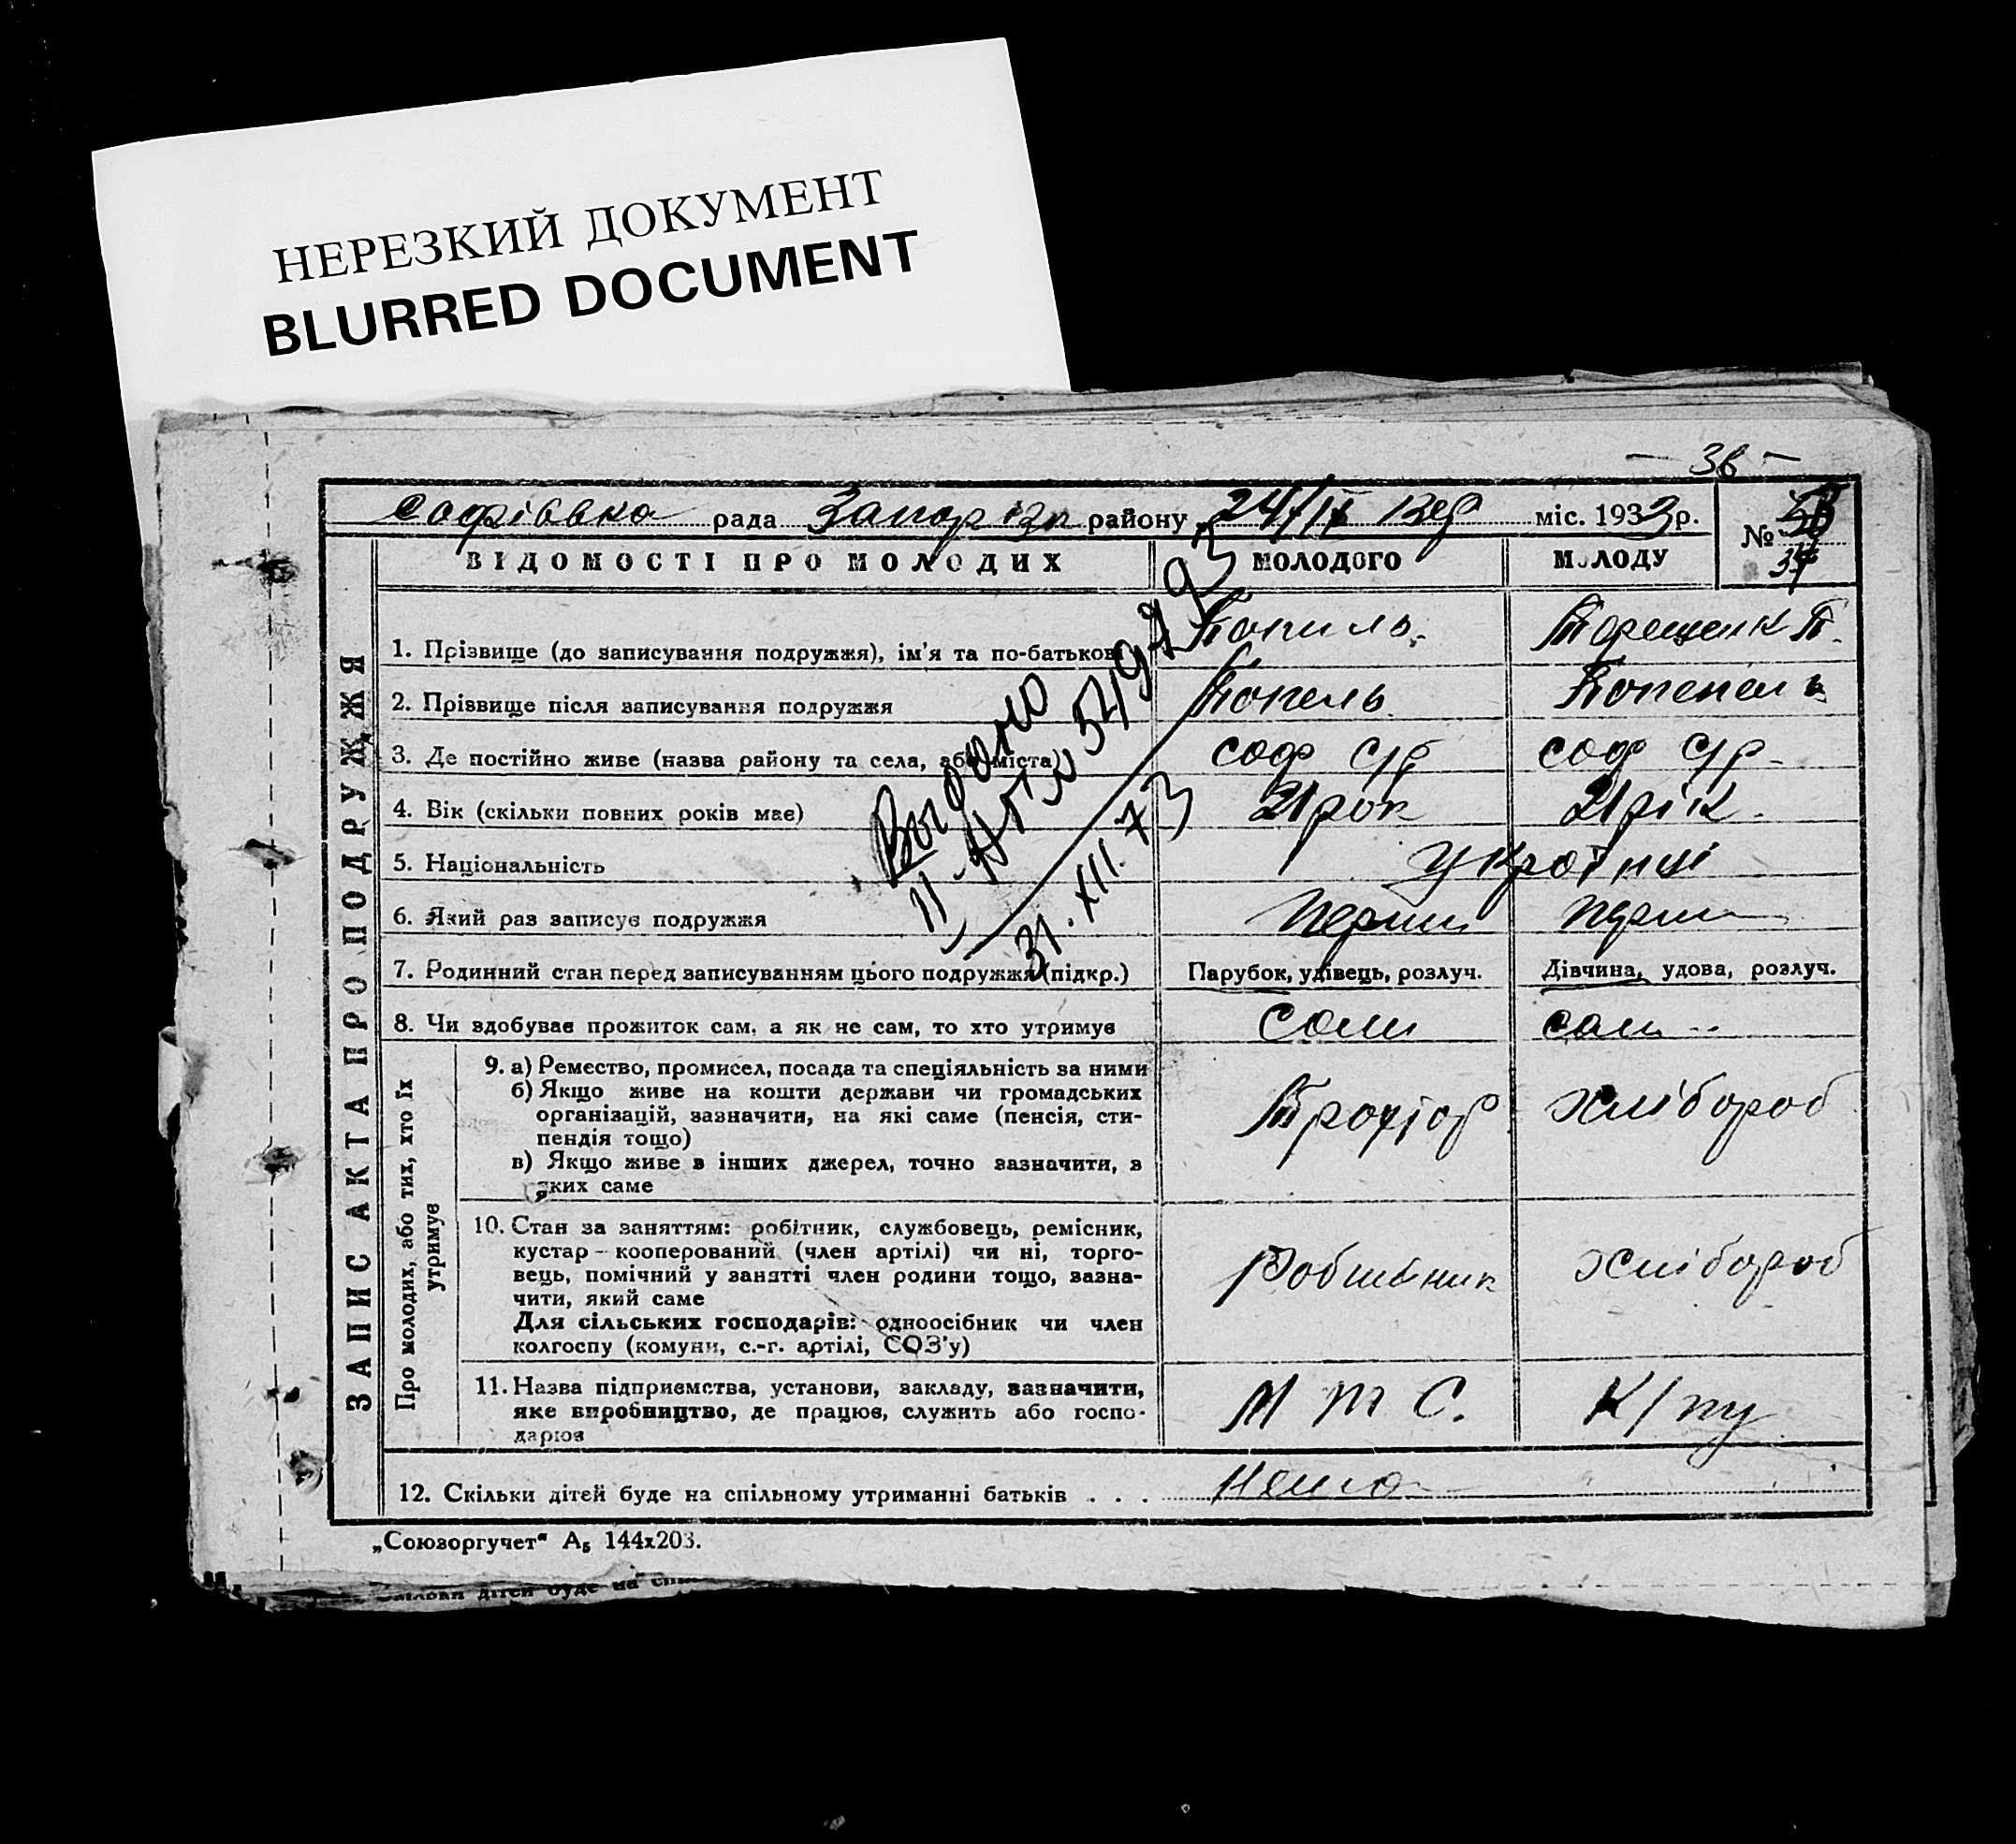 НЕРЕЗКИЙ ДОКУМЕНТ
BLURRED DOCUMENT
— 36 —
Софіівка рада Запоріз району 24/IX Вер міс. 1933р.
№
34
ВІДОМОСТІ ПРО МОЛОДИХ МОЛОДОГО МОЛОДУ
ЗАПИС АКТА ПРО ПОДРУЖЖЯ
1. Прізвище (до записування подружжя), ім'я та по-батькові Копиль. Терещенк П.
2. Прізвище після записування подружжя Копель
3. Де постійно живе (назва району та села, або міста) соф с/р соф с/р-
4. Вік (скільки повних років має) 21 рок 21 рік.
5. Національність Українці
6. Який раз записує подружжя Перши перши
7. Родинний стан перед записуванням цього подружжя (підкр.) Парубок, удівець, розлуч. Дівчина, удова, розлуч.
8. Чи здобуває прожиток сам, а як не сам, то хто утримує Сам сам
Про молодих, або тих, хто їх
утримує
9. а) Ремество, промисел, посада та спеціяльність за ними
б) Якщо живе на кошти держави чи громадських
організацій, зазначити, на які саме (пенсія, сти-
пендія тощо)
в) Якщо живе з інших джерел, точно зазначити, з
яких саме
хлібороб
10. Стан за заняттям: робітник, службовець, ремісник,
кустар - кооперований (член артілі) чи ні, торго-
вець, помічний у занятті член родини тощо, зазна-
чити, який саме
Для сільських господарів: одноосібник чи член
колгоспу (комуни, с.-г. артілі, СОЗ'у)
хлібороб
11. Назва підприємства, установи, закладу, зазначити,
яке виробництво, де працює, служить або госпо-
дарює
М т С.
12. Скільки дітей буде на спільному утриманні батьків . . . Нема
Видано
31.XII.73
„Союзоргучет" А5 144х203.